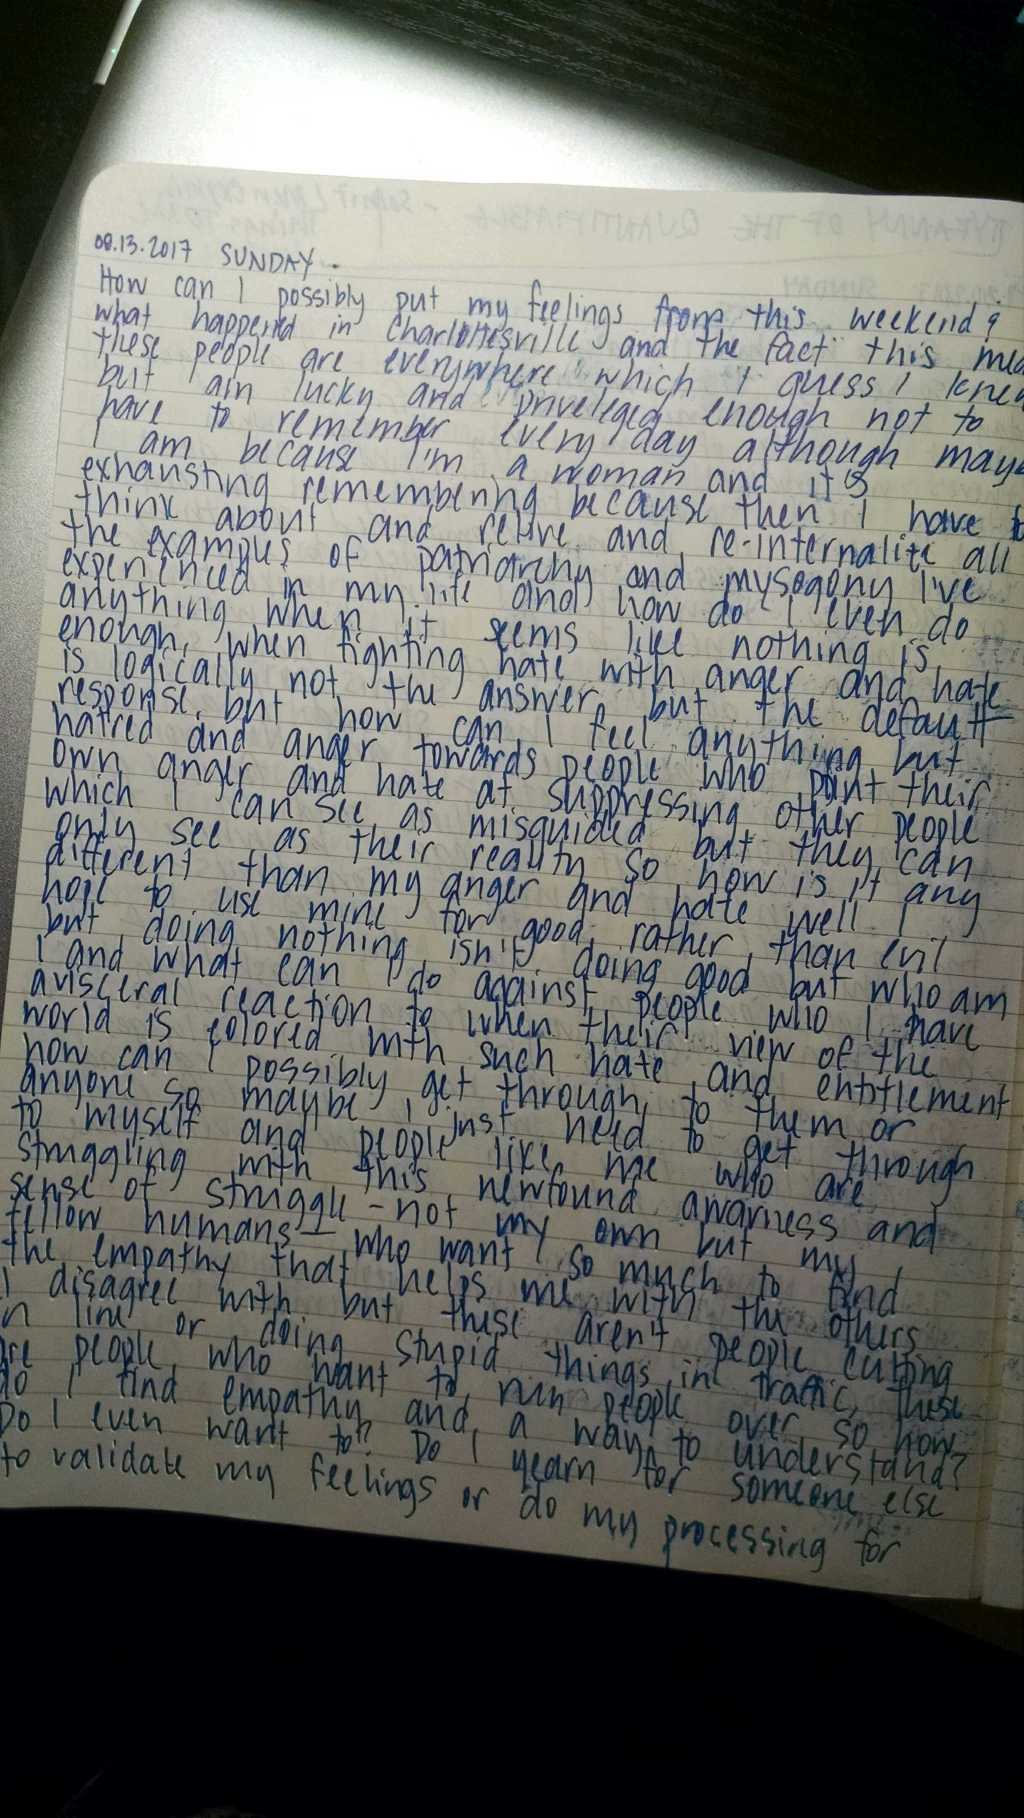 TYRANNY OF THE QUANTIFIABLE
SUNDAY
08.13.2017 SUNDAY.
How can I possibly put my feelings from this weekend &
what happened in Charlottesville and the fact this
these people are everywhere which I guess I knew
but am lucky and priveleged enough not to
have to remember every day although
I am because I'm a woman and it is
exhausting remembering because then I have to
think about and relive and re-internalize all
the examples of patriarchy and mysogony I've
experienced in my life and how do I even do
anything when it seems like nothing is
enough, when fighting hate with anger and hate
is logically not the answer, but the default
response, but how can I feel anything but
hatred and anger towards people who point their
own anger and hate at suppressing other people
which I can see as misguided but they can
only see as their reality so how is it any
different than my anger and hate well I
hope to use mine for good rather than evil
but doing nothing isn't doing good but who am
I and what can I do against people who I have
a visceral reaction to when their view of the
world is colored with such hate and entitlement
how can I possibly get through to them or
anyone so maybe I just need to get through
to myself and people like me who are
struggling with this newfound awarness and
sense of struggle - not my own but my
fellow humans - who want so much to find
the empathy that helps me with the others
I disagree with but these aren't people cutting
in line or doing stupid things in traffic, these
are people who want to run people over so how
do I find empathy and a way to understand?
Do I even want to? Do I yearn for someone else
to validate my feelings or do my processing for